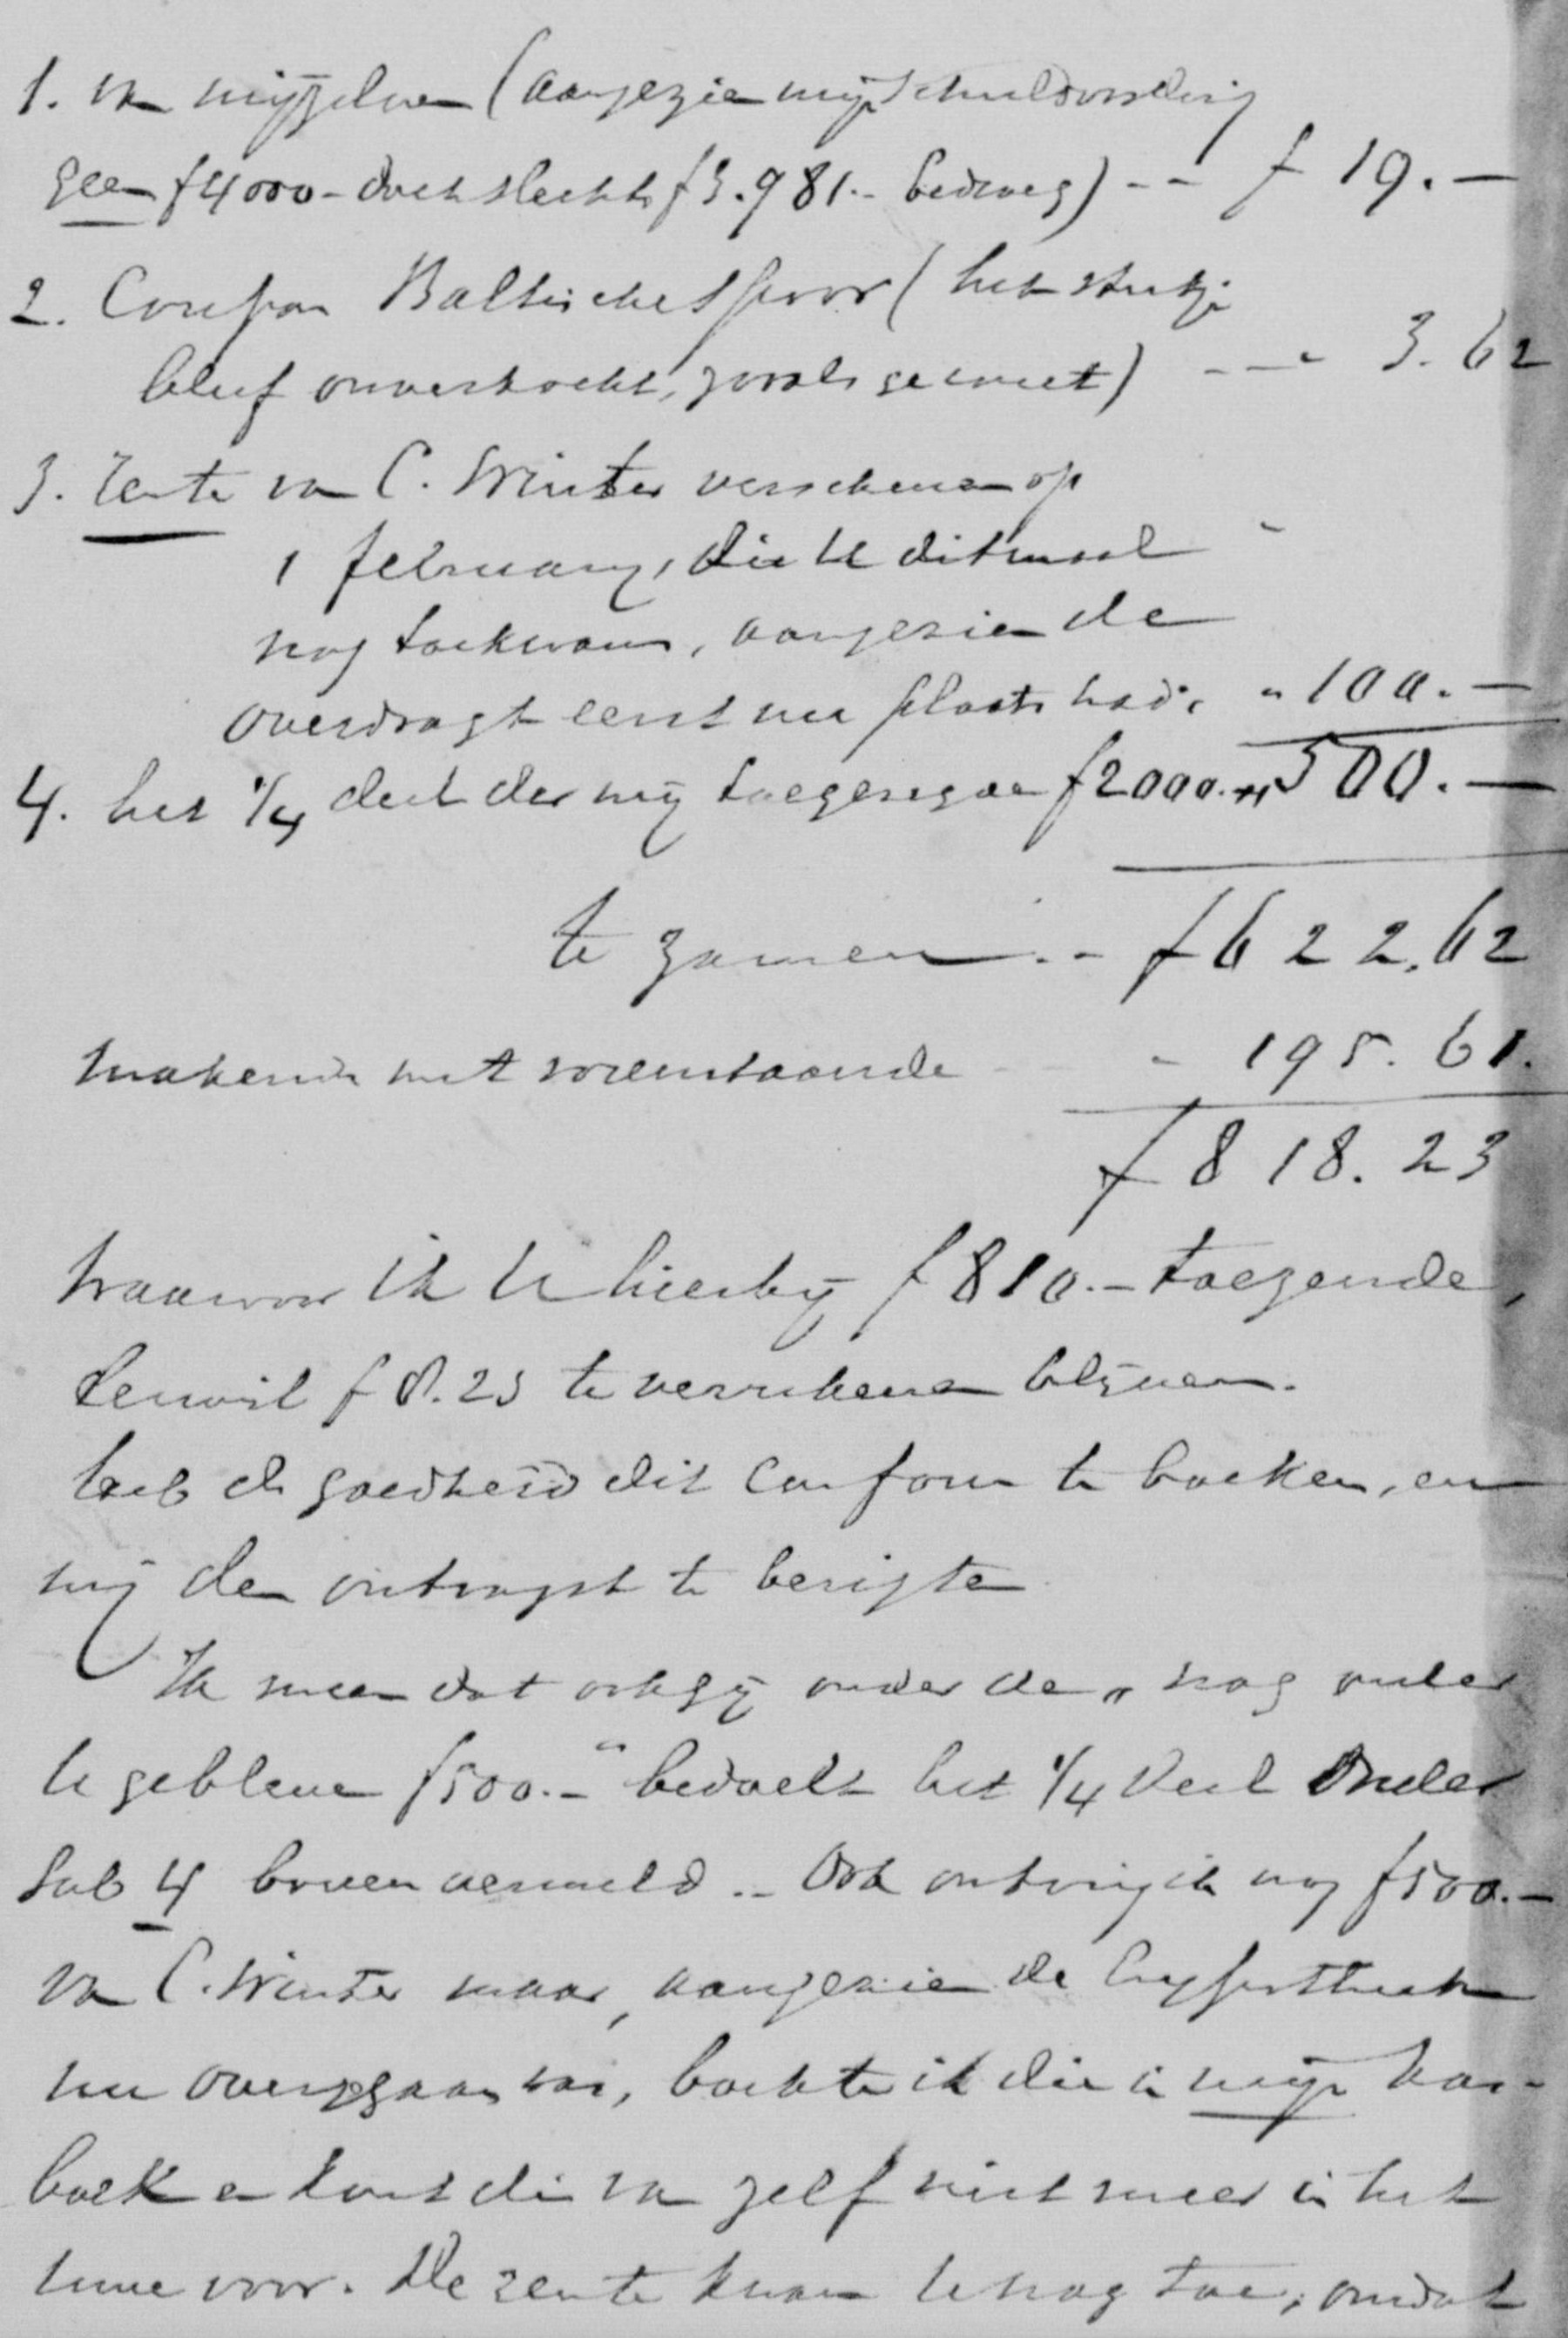 1. van mijzelven (aangezien mijn schuldvordering
geen f 4000 - doch slechts f 3.981.- bedroeg) -- f 19.—
2. Coupon Baltische Spoor (het stukje
bleef onverkocht, zooals ge weet) --- " 3.62
3. rente van C. Winter verschenen op
1 february, die U ditmaal
nog toekwam, aangezien de
overdragt eerst nu plaats had. " 100.—
4. het 1/4 deel der mij toegezegde f 2000.- " 500.—
te zamen .- f 622.62
makende met voorenstaande - 195.61.
f 818.23
waarvoor ik U hierbij f 810.- toezende,
terwijl f 8.23 te verrekenen blijven.
heb de goedheid dit conform te boeken, en
mij den ontvangst te berigten
Ik meen dat ook gij onder de „nog onder
U gebleven f 500.-" bedoelt het 1/4 deel onder
sub 4 boven vermeld.. Ook ontving ik nog f 500.—
van C. Winter maar, aangezien de hypotheek
nu overgegaan was, boekte ik die in mijn kas-
boek en komt die van zelf niet meer in het
uwe voor. De rente kwam U nog toe, omdat